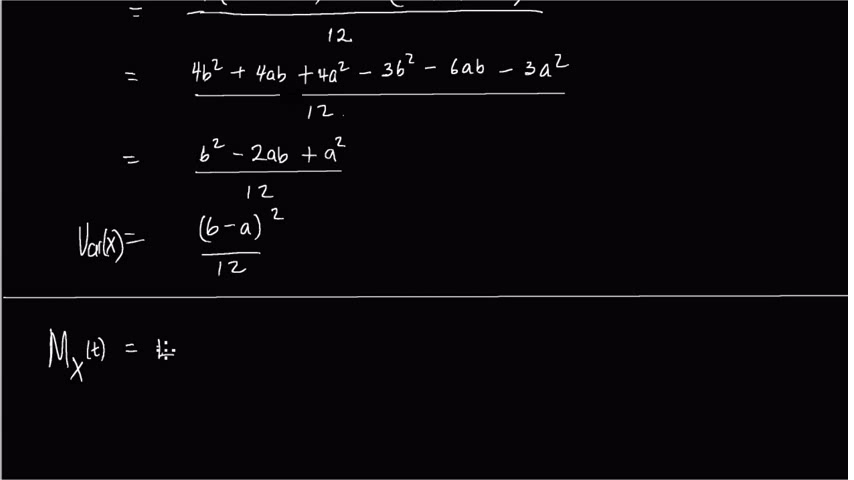 = 12
= 4b² + 4ab + 4a² - 3b² - 6ab - 3a² / 12
= b² - 2ab + a² / 12
Var(X) = (b-a)² / 12
M_X(t) =